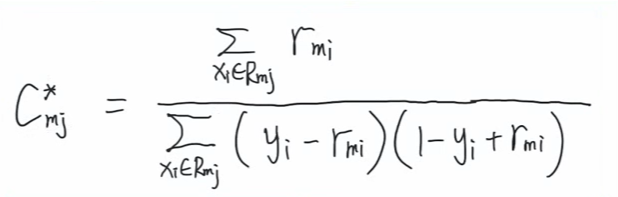 C*_{mj} = \frac{\sum_{x_i \in R_{mj}} r_{mi}}{\sum_{x_i \in R_{mj}} (y_i - r_{mi})(1 - y_i + r_{mi})}